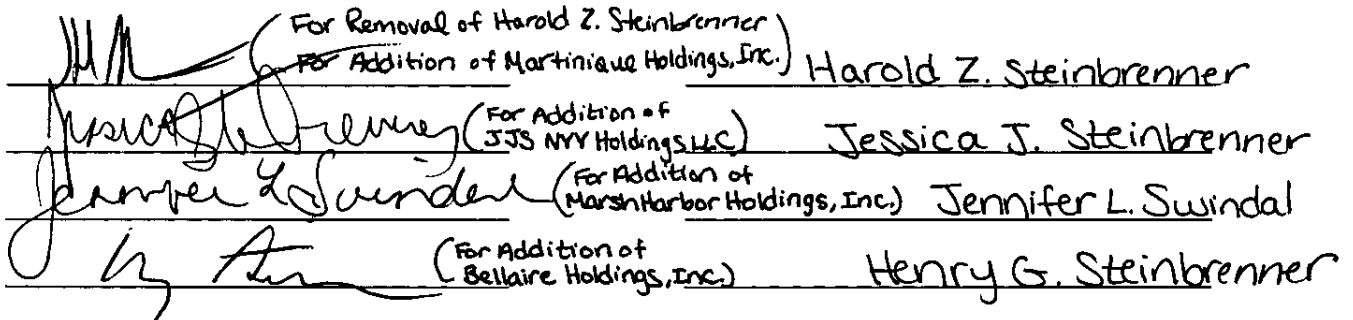 (For Removal of Harold Z. Steinbrenner
For Addition of Martinique Holdings, Inc.) Harold Z. Steinbrenner
Jessica Steinbrenner (For Addition of
JJS NYY Holdings LLC) Jessica J. Steinbrenner
Jennifer L Swindal (For Addition of
Marsh Harbor Holdings, Inc.) Jennifer L. Swindal
(For Addition of
Bellaire Holdings, Inc.) Henry G. Steinbrenner